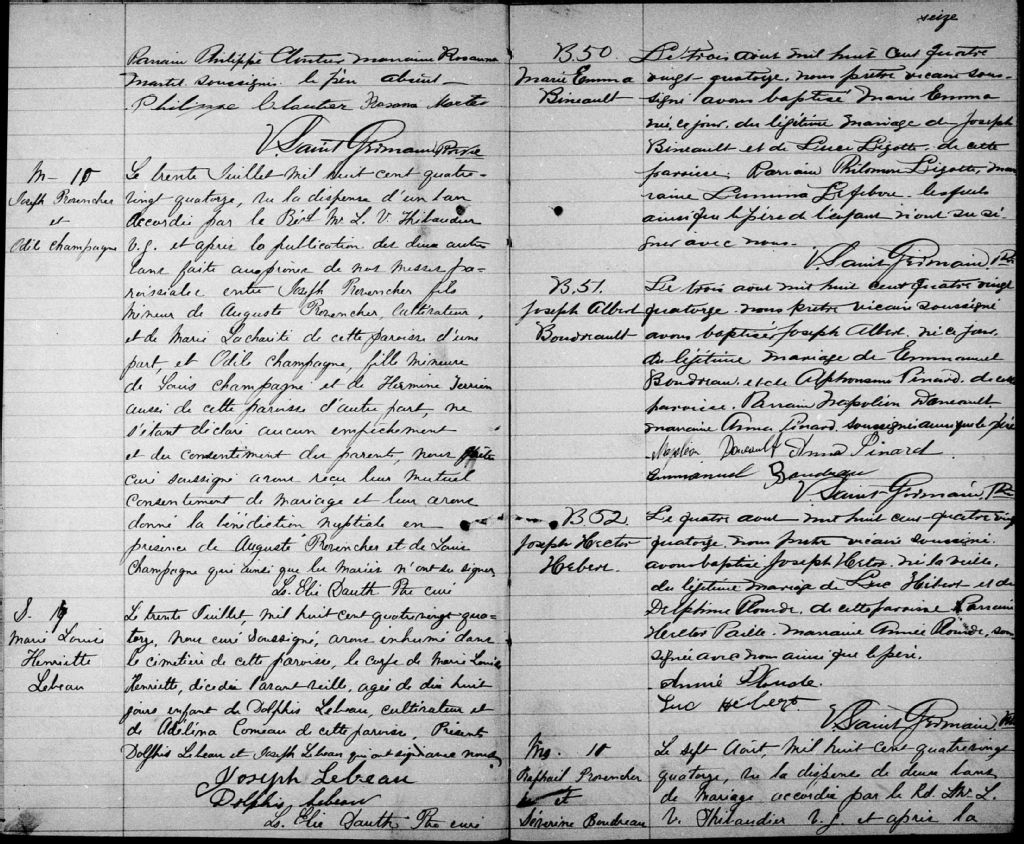 Parrain Philippe Cloutier marraine Rosanna
Martel soussignés. le père absent
Philippe Cloutier Rosana Martel
V. Saint Germain Ptre
M- 10
Joseph Provencher
et
Odile Champagne
Le trente Juillet mil huit cent quatre-
vingt quatorze, vu la dispense d'un ban
accordée par le Mr L. V. Thibaudier
V. g. et après la publication des deux autres
bans faite au prône de nos messes pa-
roissiales entre Joseph Provencher fils
mineur de Auguste Provencher, Cultivateur,
et de Marie Lacharité de cette paroisse d'une
part, et Odile Champagne, fille mineure
de Louis Champagne et de Hermine Terrien
aussi de cette paroisse d'autre part, ne
s'étant déclaré aucun empêchement
et du consentement des parents, nous prêtre
curé soussigné avons reçu leur mutuel
consentement de mariage et leur avons
donné la bénédiction nuptiale en
présence de Auguste Provencher et de Louis
Champagne qui ainsi que les mariés n'ont su signer
Ls. Elie Dauth Ptre curé
S. 19
Marie Louise
Henriette
Lebeau
Le trente Juillet, mil huit cent quatrevingt qua-
torze, Nous curé soussigné, avons inhumé dans
le cimetière de cette paroisse, le corps de Marie Louise
Henriette, décédée l'avant veille, agée de dix huit
jours enfant de Dolphis Lebeau, cultivateur et
de Adélina Comeau de cette paroisse, Présent
Dolphis Lebeau et Joseph Lebeau qui ont signé avec nous
Joseph Lebeau
Dolphis Lebeau
Ls. Elie Dauth Ptre curé
seize
B. 50
Marie Emma
Bineault
Le trois aout mil huit cent quatre
vingt-quatorze, nous prêtre vicaire sous-
signé avons baptisé Marie Emma
née ce jour, du légitime mariage de Joseph
Bineault et de Luce Ligotte, de cette
paroisse. Parrain Philemon Ligotte, mar
raine Lefebvre lesquels
ainsi que le père de l'enfant n'ont su si
gner avec nous.
V. Saint Germain, Ptr.
B. 51.
Joseph Albert
Boudreault
Le trois aout mil huit cent quatre vingt
quatorze, nous prêtre vicaire soussigné
avons baptisé Joseph Albert, né ce jour,
du légitime mariage de Emmanuel
Boudreau, et de Alphonsine Pinard, de cette
paroisse. Parrain Napoléon Daneault
marraine Anna Pinard, soussignés ainsi que le père
Napoléon Daneault Anna Pinard
Emmanuel Boudreau
V. Saint Germain, Ptr
B 52
Joseph Hector
Hebert.
Le quatre aout mil huit cent quatre vingt
quatorze, nous prêtre vicaire soussigné
avons baptisé Joseph Hector, né la veille,
du légitime mariage de Luc Hébert et de
Delphine Plourde, de cette paroisse Parrain
Hector Paille. Marraine Annie Plourde, sous
signée avec nous ainsi que le père.
Annie Plourde.
Luc Hebert.
V. Saint Germain, Ptr
M. 10
Raphaël Provencher
et
Séverine Boudreau
Le sept Août, Mil huit cent quatrevingt
quatorze, vu la dispense de deux bans
de mariage accordée par le Rd. Mr L.
V. Thibaudier V. g. et après la